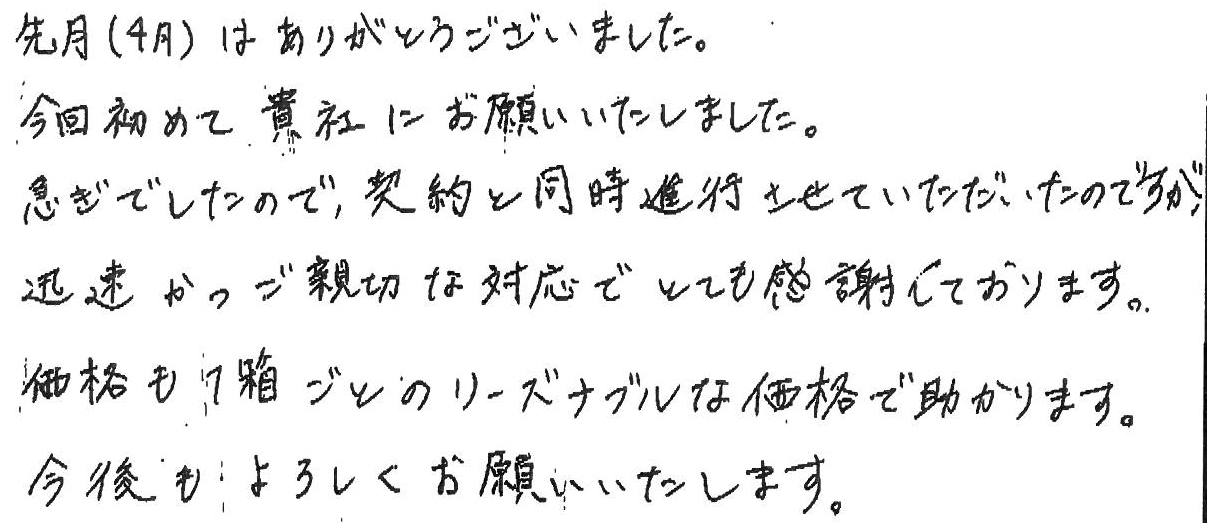 先月(4月)はありがとうございました。
今回初めて貴社にお願いいたしました。
急ぎでしたので,契約と同時進行させていただいたのですが,
迅速かつご親切な対応でとても感謝しております。
価格も1箱ごとのリーズナブルな価格で助かります。
今後もよろしくお願いいたします。